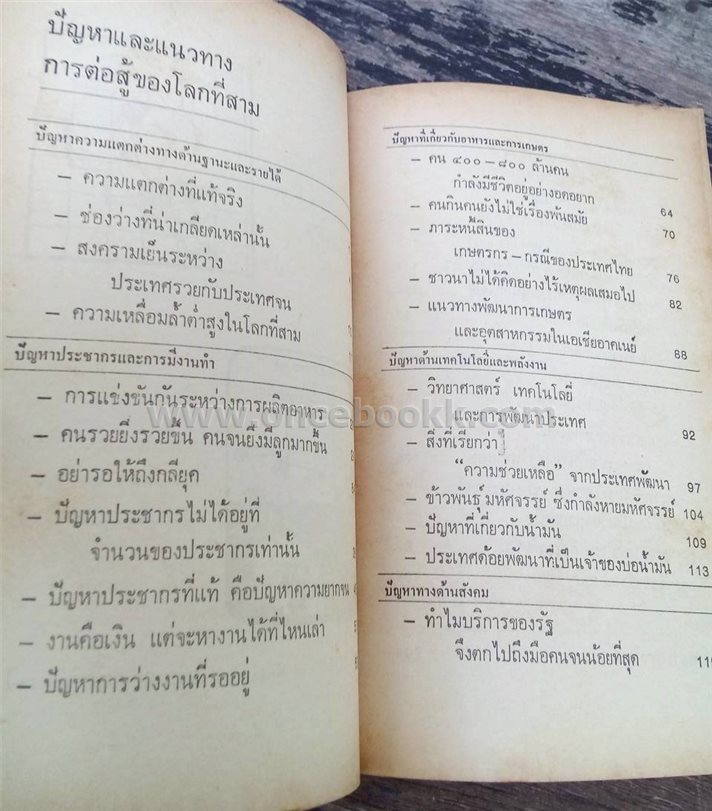 ปัญหาและแนวทาง
การต่อสู้ของโลกที่สาม
ปัญหาความแตกต่างทางด้านฐานะและรายได้
– ความแตกต่างที่แท้จริง
– ช่องว่างที่น่าเกลียดเหล่านั้น
– สงครามเย็นระหว่าง
ประเทศรวยกับประเทศจน
– ความเหลื่อมล้ำต่ำสูงในโลกที่สาม
ปัญหาประชากรและการมีงานทำ
– การแข่งขันกันระหว่างการผลิตอาหาร
– คนรวยยิ่งรวยขึ้น คนจนยิ่งมีลูกมากขึ้น
– อย่ารอให้ถึงกลียุค
– ปัญหาประชากรไม่ได้อยู่ที่
จำนวนของประชากรเท่านั้น
– ปัญหาประชากรที่แท้ คือปัญหาความยากจน
– งานคือเงิน แต่จะหางานได้ที่ไหนเล่า
– ปัญหาการว่างงานที่รออยู่
ปัญหาที่เกี่ยวกับอาหารและการเกษตร
– คน ๔๐๐ – ๘๐๐ ล้านคน
กำลังมีชีวิตอยู่อย่างอดอยาก 64
– คนกินคนยังไม่ใช่เรื่องพ้นสมัย 70
– ภาระหนี้สินของ
เกษตรกร – กรณีของประเทศไทย 76
– ชาวนาไม่ได้คิดอย่างไร้เหตุผลเสมอไป 82
– แนวทางพัฒนาการเกษตร
และอุตสาหกรรมในเอเชียอาคเนย์ 88
ปัญหาด้านเทคโนโลยี่และพลังงาน
– วิทยาศาสตร์ เทคโนโลยี่
และการพัฒนาประเทศ 92
– สิ่งที่เรียกว่า
“ความช่วยเหลือ” จากประเทศพัฒนา 97
– ข้าวพันธุ์มหัศจรรย์ ซึ่งกำลังหายมหัศจรรย์ 104
– ปัญหาที่เกี่ยวกับน้ำมัน 109
– ประเทศด้อยพัฒนาที่เป็นเจ้าของบ่อน้ำมัน 113
ปัญหาทางด้านสังคม
– ทำไมบริการของรัฐ
จึงตกไปถึงมือคนจนน้อยที่สุด
www.oncebookk.com